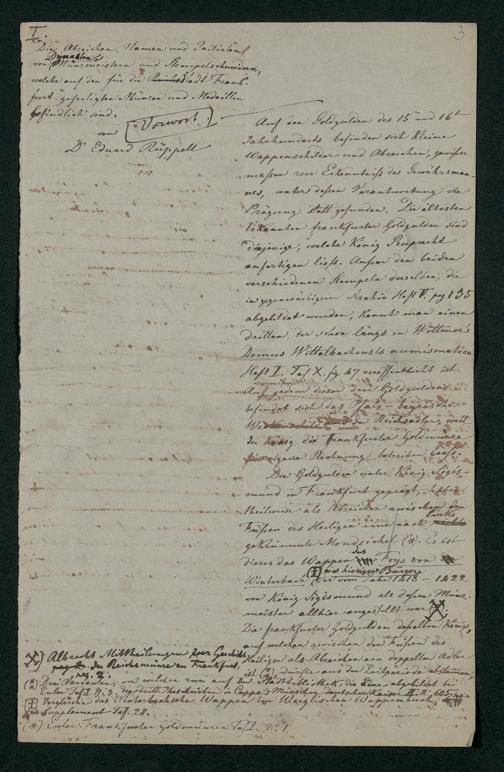 I.
3
Die Abzeichen, Namen und Initialen
von Münzmeistern und Stempelschneidern,
welche auf den für die Stadt Frank-
furt gefertigten Münzen und Medaillen
befindlich sind.
von
Dr Eduard Rüppell
Vorwort.
Auf den Goldgulden des 15 und 16t
Jahrhunderts befinden sich kleine
Wappenschilder und Abzeichen, gewisser
massen zur Erkenntniss des Gewährsman-
nes, unter dessen Verantwortung die
Prägung statt gefunden. Die ältesten
bekannten frankfurter Goldgulden sind
diejenige, welche König Ruprecht
anfertigen liess. Ausser den beiden
verschiedenen Stempeln derselben, die
in gegenwärtigem Archiv Heft V. pag 135
abgebildet wurden, kennt man einen
dritten, der schon längst in Wittmer's
Domus Wittelbachensis numismatica
Heft I. Taf X. fig 47 veröffentlicht ist.
Auf jedem dieser drei Goldgulden
befindet sich das Pfalz-bayrische
den Reichsadler, weil
der König die frankfurter Goldmünze
für eigene Rechnung betreiben liess.
Die Goldgulden unter König Sigis-
mund in Frankfurt geprägt, haben
theilweise als Abzeichen zwischen den
Füssen des Heiligen eine nach links
gekrümmte Mondsichel (*). Es ist
dieses das Wappen des Foys von
Winterbach, der vom Jahr 1418 – 1422
von König Sigismund als dessen Münz-
meister allhier angestellt war
Die frankfurter Goldgulden desselben Königs,
auf welchen zwischen den Füssen des
Heiligen als Abzeichen ein doppelter Adler
ist, dürften aus der Zeitperiode abstammen,
Albrecht Mittheilungen zur Geschichte
der Reichsmünze in Frankfurt,
pag. 2.
Vergleiche das Winterbachsche Wappen in Weiglischen Wappenbuch
Supplement Taf. 28.
(*) Euler Frankfurter Goldmünzen Taf I. 2. 1.